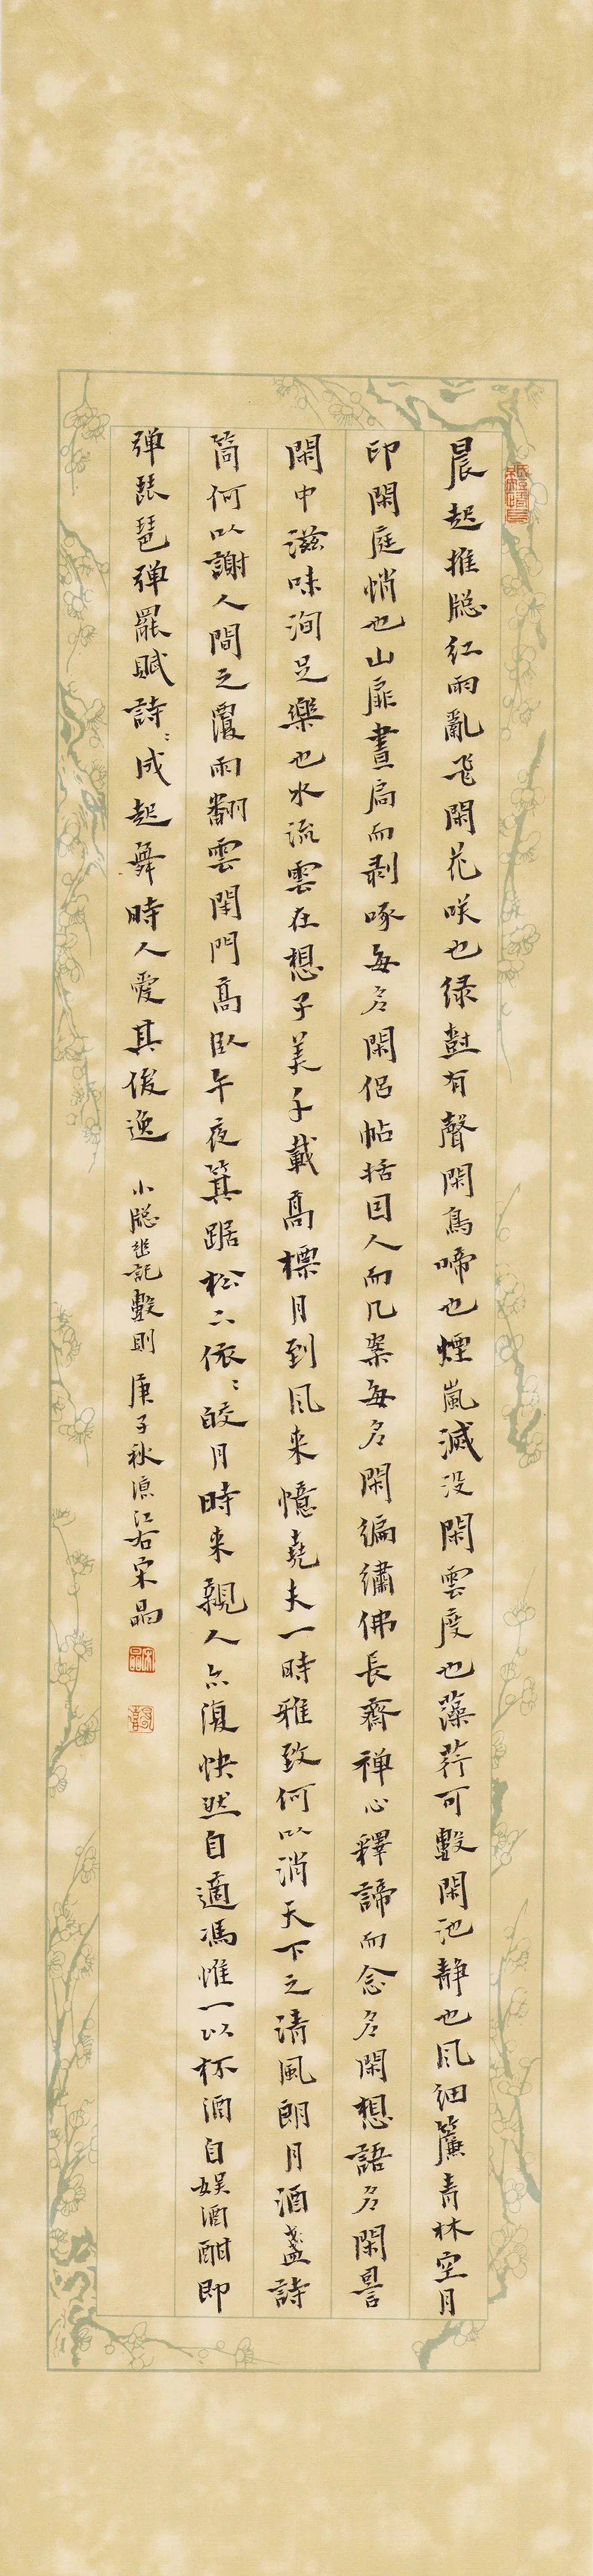 晨起推牕紅雨亂飛閑花咲也緑樹有聲閑鳥啼也煙嵐滅没閑雲度也藻荇可數閑池静也風细簾青林空月
印閑庭悄也山扉晝扃而剥啄每名閑侣帖括困人而几案每名閑编繡佛長齋禅心釋諦而念名閑想語名閑詈
閑中滋味洵足樂也水流雲在想子美千載高標月到風来憶堯夫一時雅致何以消天下之清風朗月酒盞詩
筒何以謝人間之覆雨翻雲閉門高臥午夜箕踞松下依〻皎月時来親人亦復快然自適馮惟一以杯酒自娱酒酣即
弹琵琶弹罷賦詩〻成起舞時人愛其俊逸 小牕幽記數則 庚子秋 江右宋晶